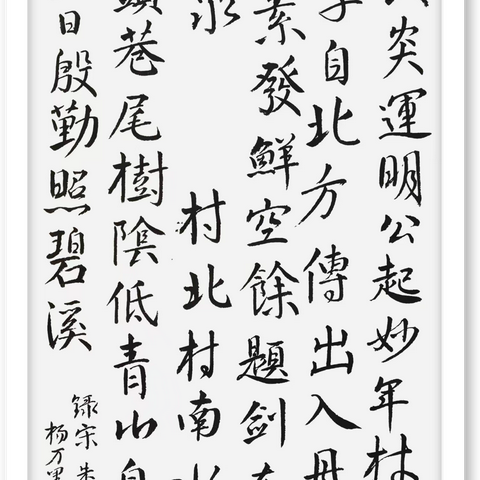 炎運明公起妙年
自北方傳出入
素發鮮空餘題劍
村北村南水
頭巷尾樹陰低青山自
日殷勤照碧溪
録宋朱
杨万里